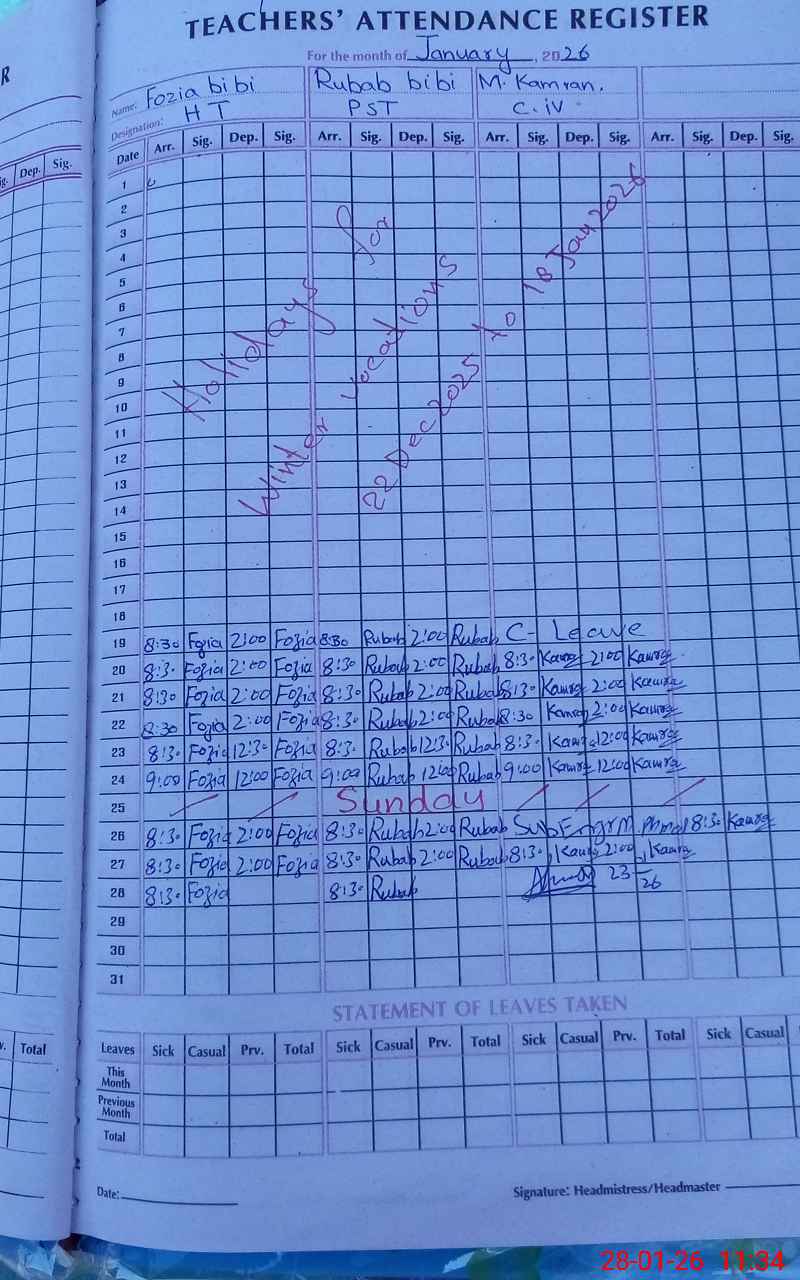 TEACHERS' ATTENDANCE REGISTER
For the month of January, 2026
R
Name: Fozia bibi Rubab bibi M. Kamran.
Designation: HT PST C.iv
Date Arr. Sig. Dep. Sig. Arr. Sig. Dep. Sig. Arr. Sig. Dep. Sig. Arr. Sig. Dep. Sig.
ig. Dep. Sig.
1
2
3
4
5
6
7
8
9
10
11
12
13
14
15
16
17
18
Holidays for
Winter vocations
22 Dec 2025 to 18 Jan 2026
19 8:30 Fozia 2:00 Fozia 8:30 Rubab 2:00 Rubab C- Leave
20 8:3. Fozia 2:00 Fozia 8:30 Rubab 2:00 Rubab 8:3. Kamra 2:00 Kamra
21 8:30 Fozia 2:00 Fozia 8:3. Rubab 2:00 Rubab 8:3. Kamra 2:00 Kamra
22 8:30 Fozia 2:00 Fozia 8:3. Rubab 2:00 Rubab 8:30 Kamra 2:00 Kamra
23 8:3. Fozia 12:3. Fozia 8:3. Rubab 12:3. Rubab 8:3. Kamra 12:00 Kamra
24 9:00 Fozia 12:00 Fozia 9:00 Rubab 12:00 Rubab 9:00 Kamra 12:00 Kamra
25 Sunday
26 8:3. Fozia 2:00 Fozia 8:3. Rubab 2:00 Rubab 8:3. Kamra
27 8:3. Fozia 2:00 Fozia 8:3. Rubab 2:00 Rubab 8:3. Kamra 2:00 Kamra
28 8:3. Fozia 8:3. Rubab 23-
26
29
30
31
STATEMENT OF LEAVES TAKEN
v. Total
Leaves Sick Casual Prv. Total Sick Casual Prv. Total Sick Casual Prv. Total Sick Casual
This Month
Previous Month
Total
Date: Signature: Headmistress/Headmaster
28-01-26 11:34